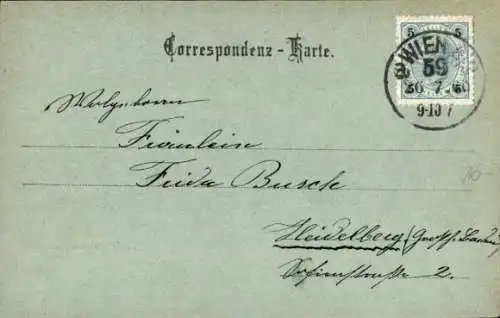 Correspondenz - Karte.
5 5
WIEN
59
30 7
9-10 V
Wolgeboren
Fräulein
Frida Busch
Heidelberg (Grossh. Baden)
Sofienstraße 2.